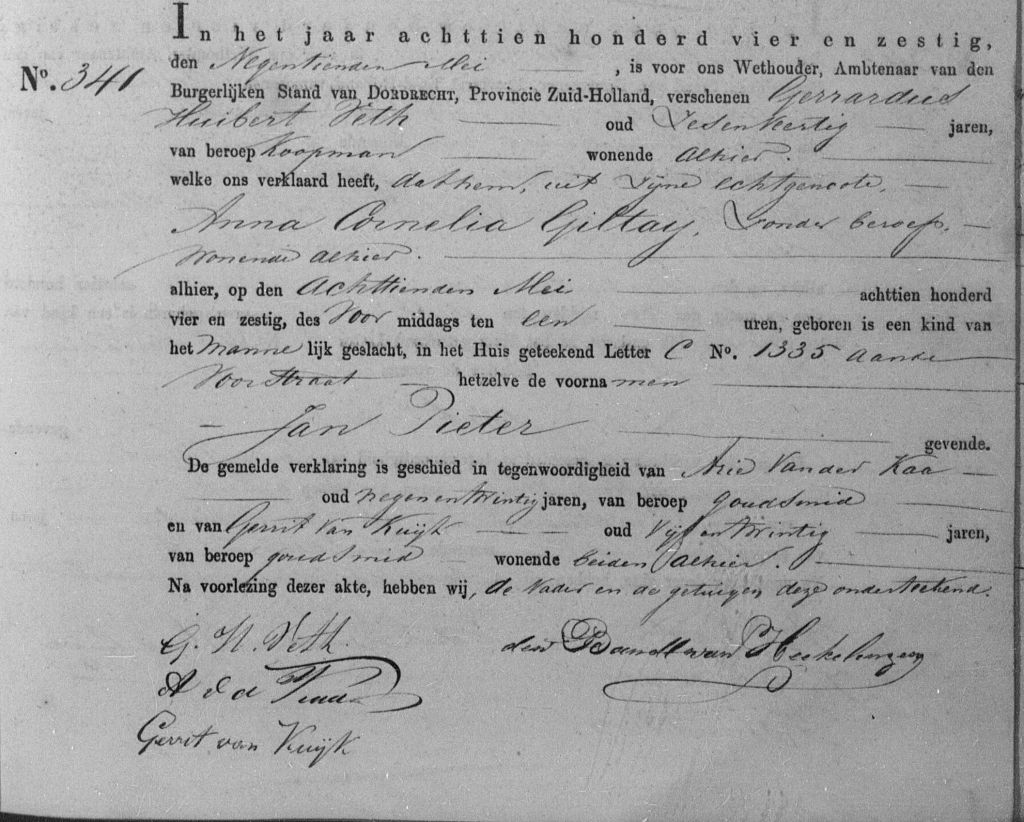 In het jaar achttien honderd vier en zestig,
No. 341 den Negentienden Mei, is voor ons Wethouder, Ambtenaar van den
Burgerlijken Stand van DORDRECHT, Provincie Zuid-Holland, verschenen Gerrardus
Huibert Veth oud Zesenveertig jaren,
van beroep Koopman wonende alhier.
welke ons verklaard heeft, dat hem, uit Zijne echtgenoote,
Anna Cornelia Giltay, Zonder beroep,
Wonende alhier.
alhier, op den Achttienden Mei achttien honderd
vier en zestig, des Voor middags ten een uren, geboren is een kind van
het Manne lijk geslacht, in het Huis geteekend Letter C No. 1335 aan de
Voorstraat hetzelve de voorna men
Jan Pieter
gevende.
De gemelde verklaring is geschied in tegenwoordigheid van Arie Van der Kaa
oud negenentwintig jaren, van beroep goudsmid
en van Gerrit van Kuijk oud Vijfentwintig jaren,
van beroep goudsmid wonende beiden alhier.
Na voorlezing dezer akte, hebben wij, de Vader en de getuigen deze onderteekend.
G. H. Veth.
A v d
Gerrit van Kuijk